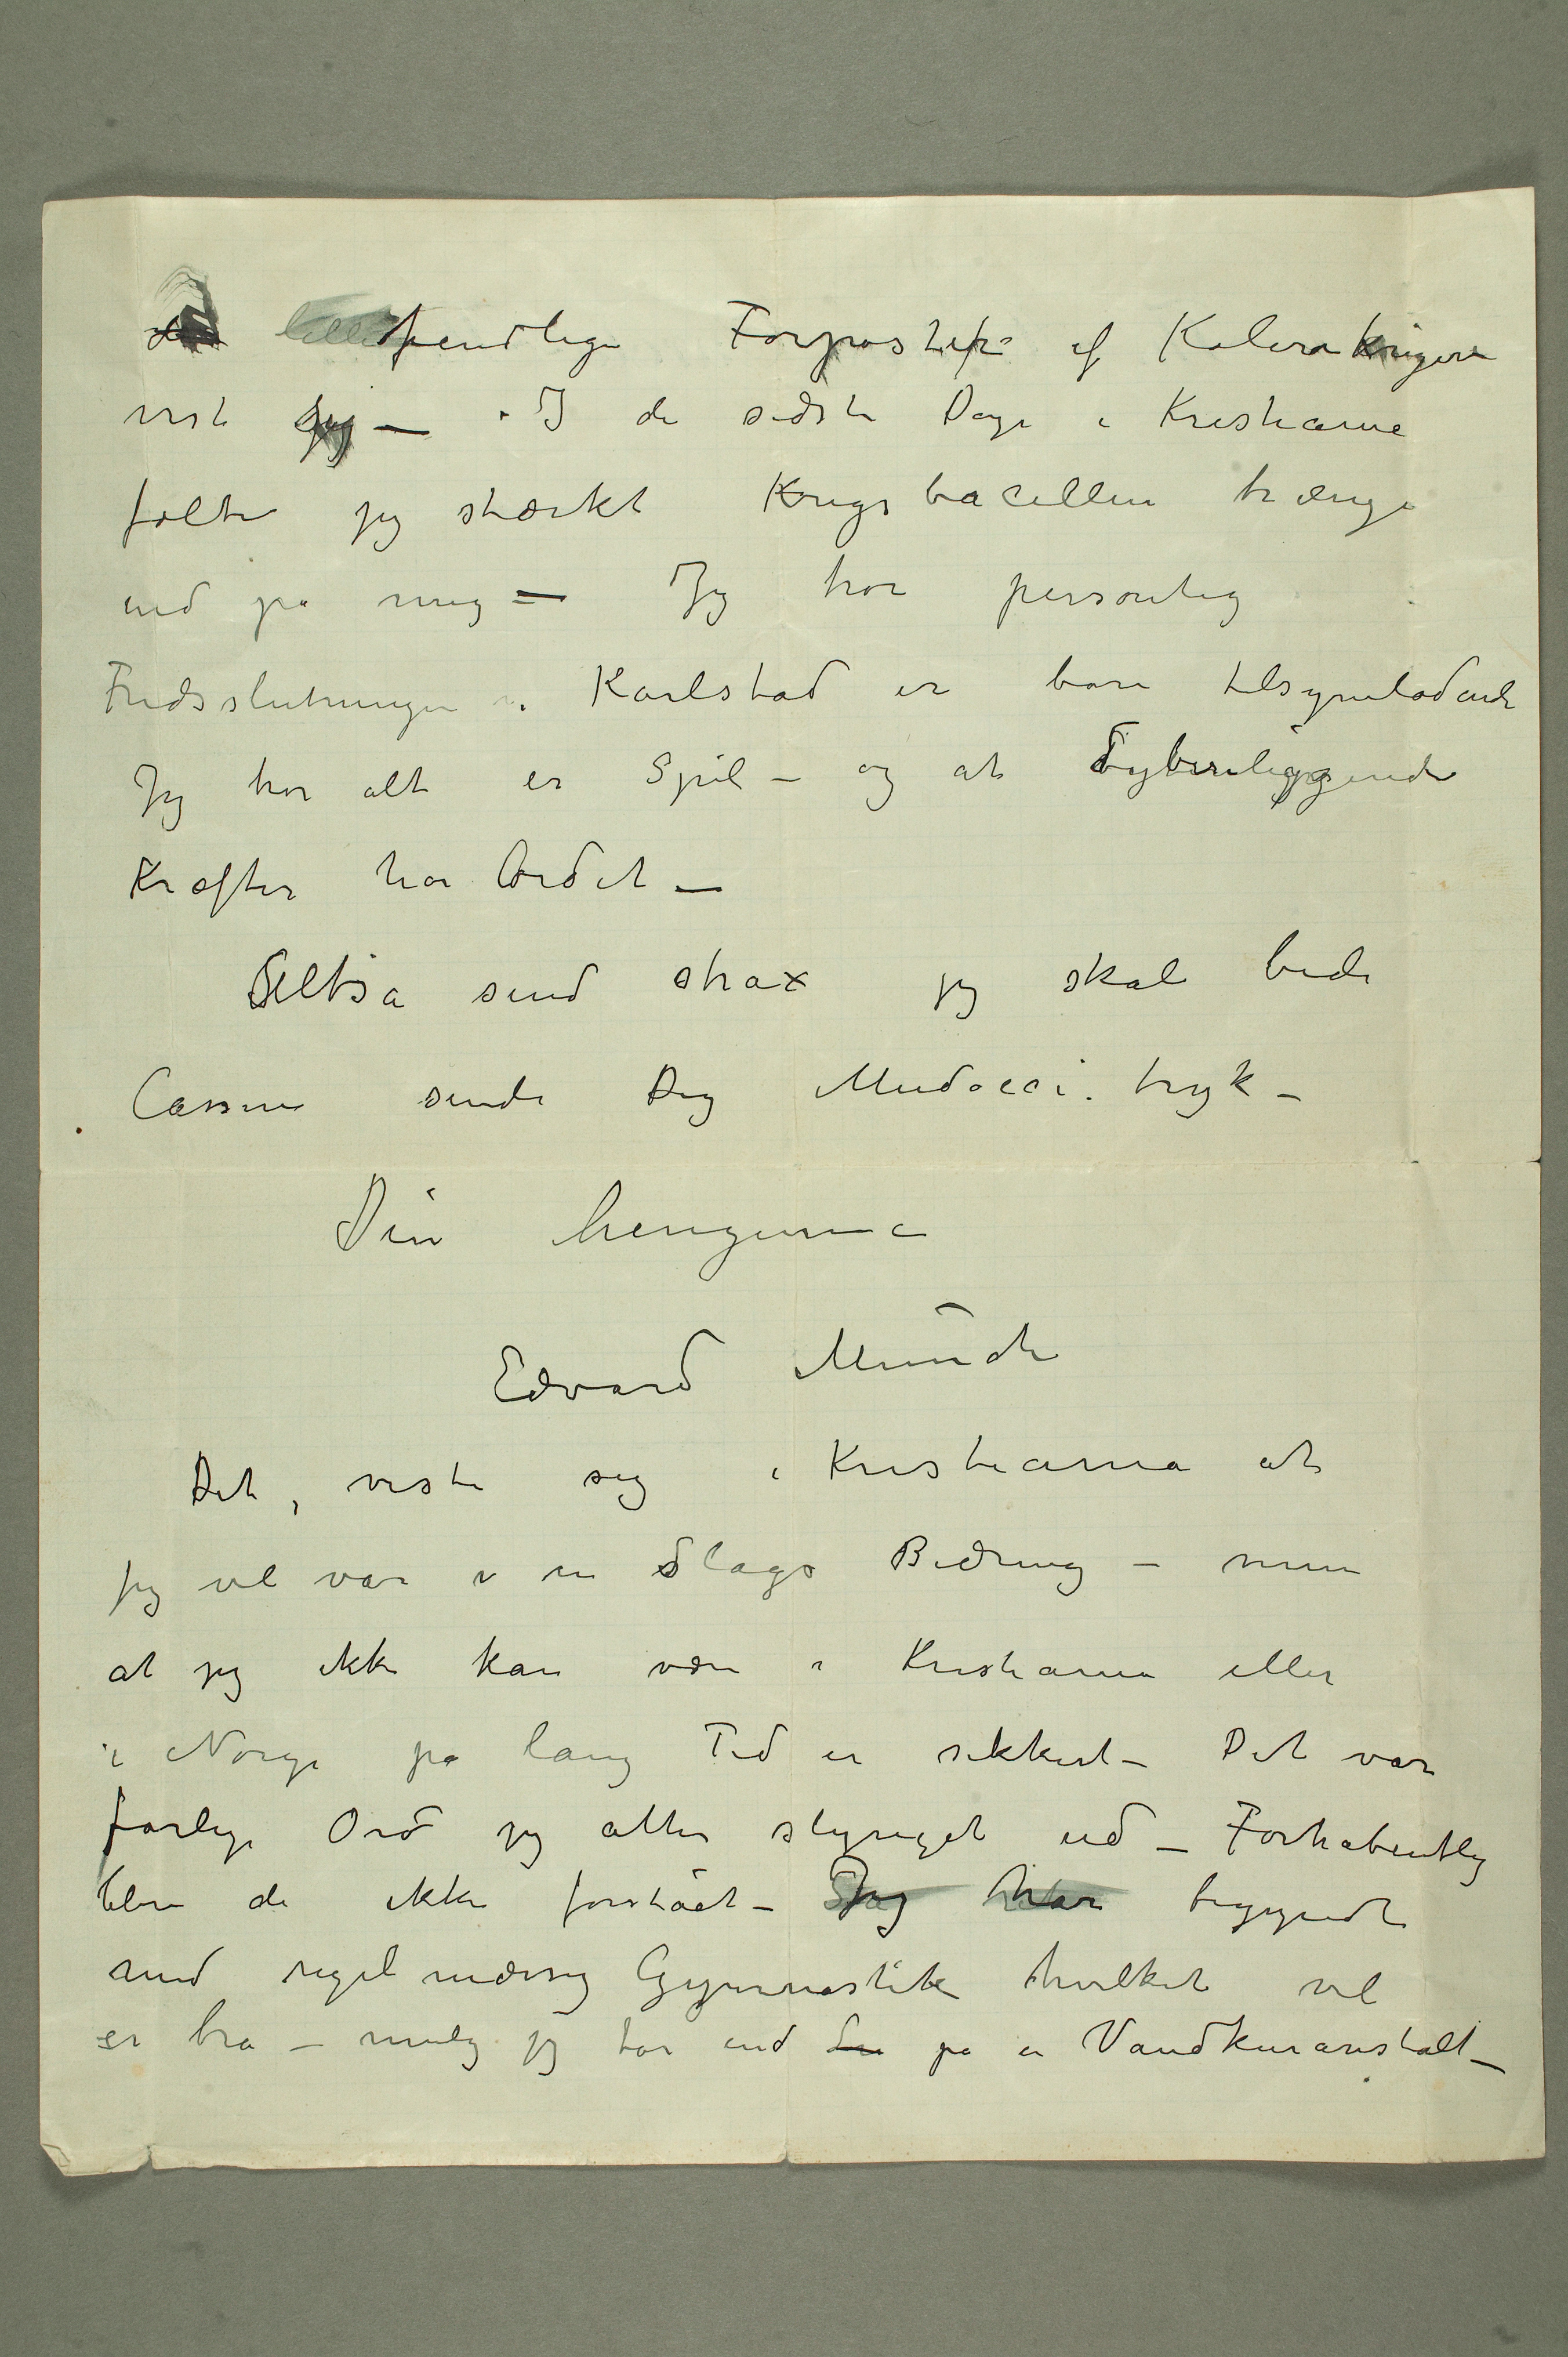 fiendlige Forposter af Kolerakrigere
vist sig — I de sidste Dage i Kristiania
følte jeg stærkt Krigsbacillen trænge
ind på mig — Jeg tror personlig
Fredsslutningen i Karlstad er bare tilsyneladende
Jeg tror alt er Spil – og at Dyberliggende
Kræfter har Ordet —
Altså send strax jeg skal bede
Cassirer sende Dig Mudocci tryk –
Din hengivne
Edvard Munch
Det viste sig i Kristiania at
jeg vel var i en Slags Bedring – men
at jeg ikke kan være i Kristiania eller
i Norge på lang Tid er sikkert – Det var
farlige Ord jeg atter slynget ud – Forhåbentlig
blev de ikke forstået – Jeg har begyndt
med regelmæssig Gymnastik hvilket vel
er bra – mulig jeg tar ind på en Vandkuranstalt —